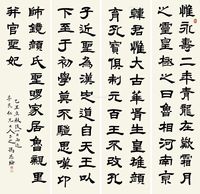 惟永壽二年龍在涒歎霜月
之靈皇極之日魯相河南京
韓君惟大古華胥生皇雄顏
育孔寶俱制元百王不改孔
子近聖為漢定道自天王以
下至于初學莫不驥思嘆卬
師鏡顏氏聖舅家居魯親里
并官聖妃